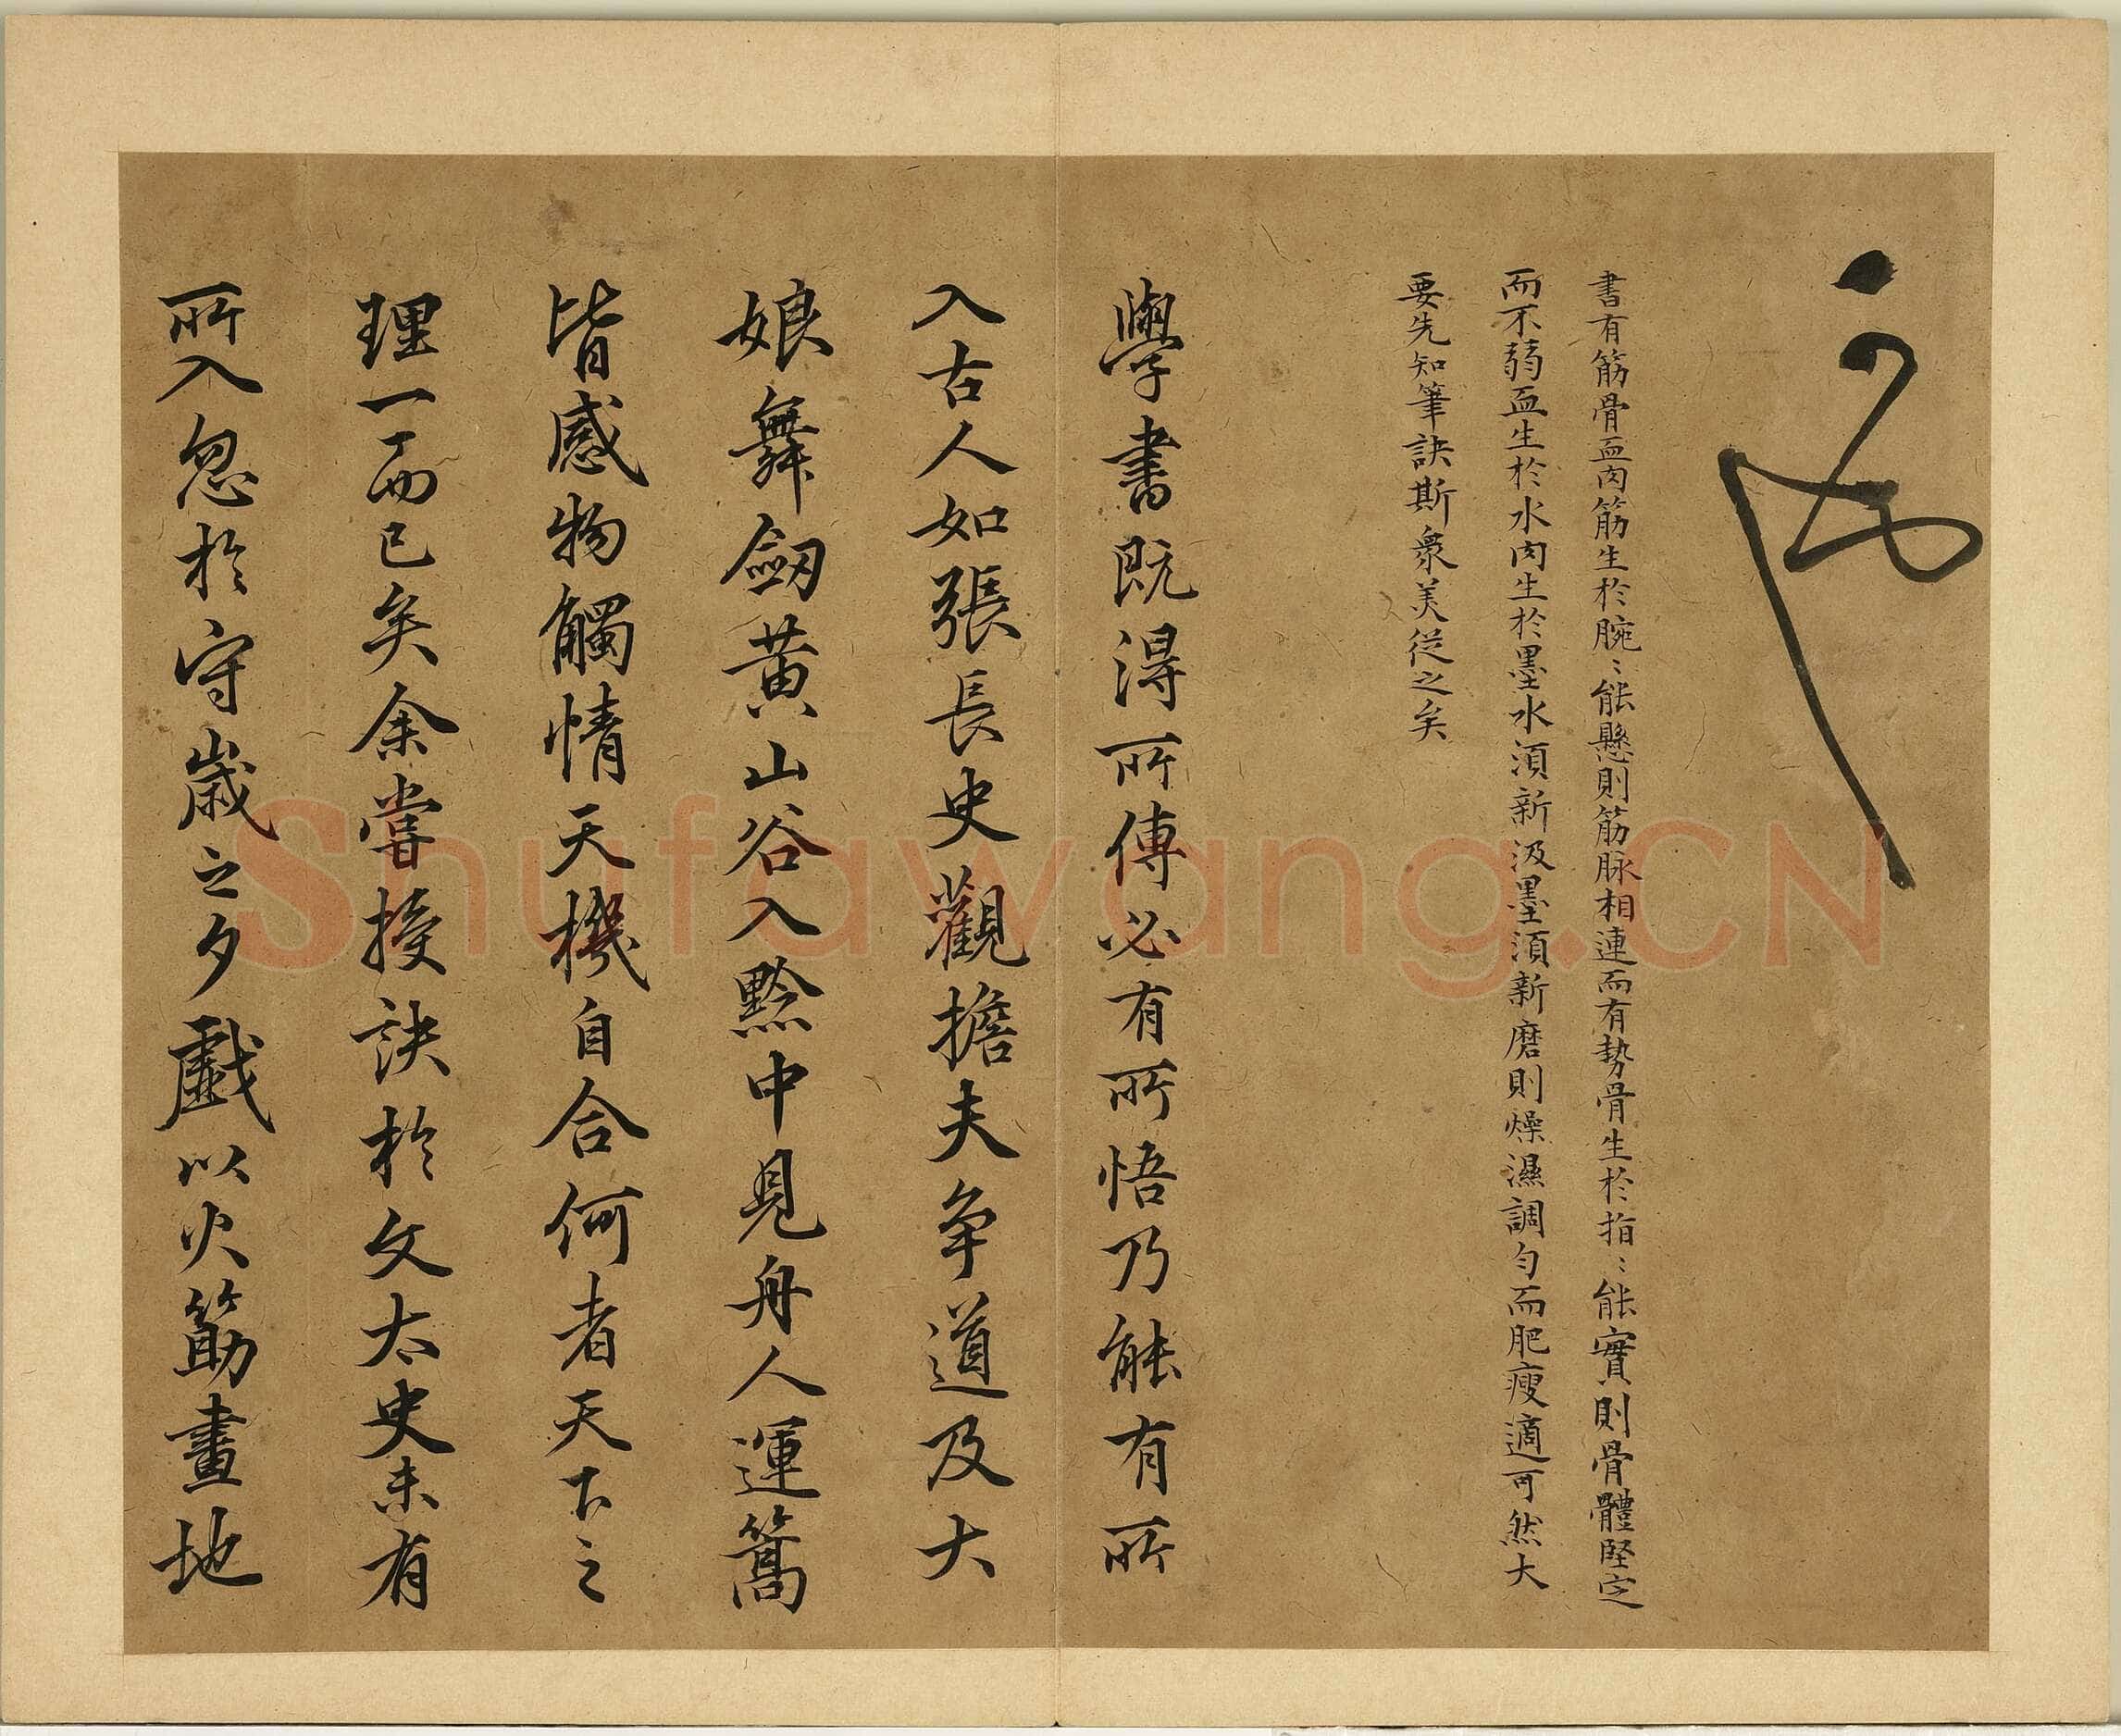 書有筋骨血肉筋生於腕〻能懸則筋脉相連而有勢骨生於指〻能實則骨體堅定
而不弱血生於水肉生於墨水須新汲墨須新磨則燥濕調勻而肥瘦適可然大
要先知筆訣斯衆美從之矣
學書既得所傳必有所悟乃能有所
入古人如張長史觀擔夫争道及大
娘舞劔黄山谷入黔中見舟人運篙
皆感物觸情天機自合何者天下之
理一而已矣余嘗授訣於文太史未有
所入忽於守歲之夕戲以火筯畫地
Shufawang.CN